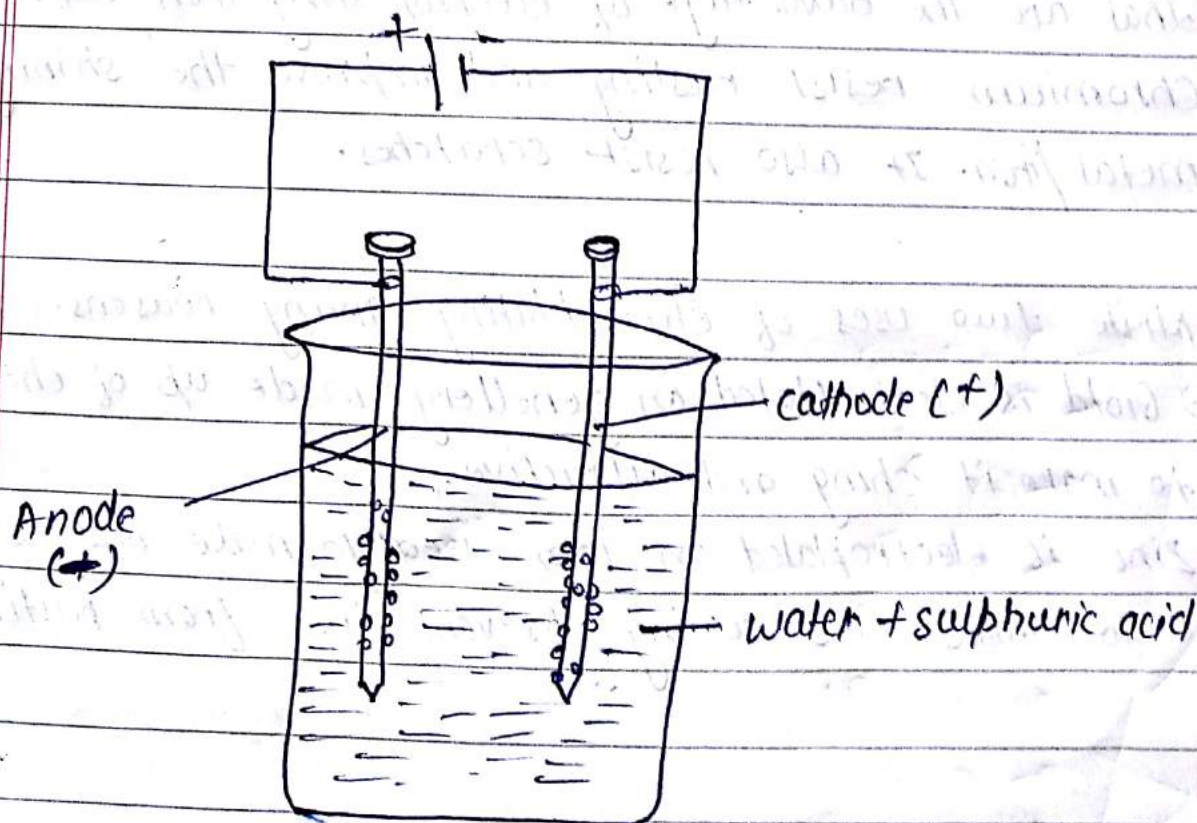 + -
cathode (+)
Anode
(+)
water + sulphuric acid